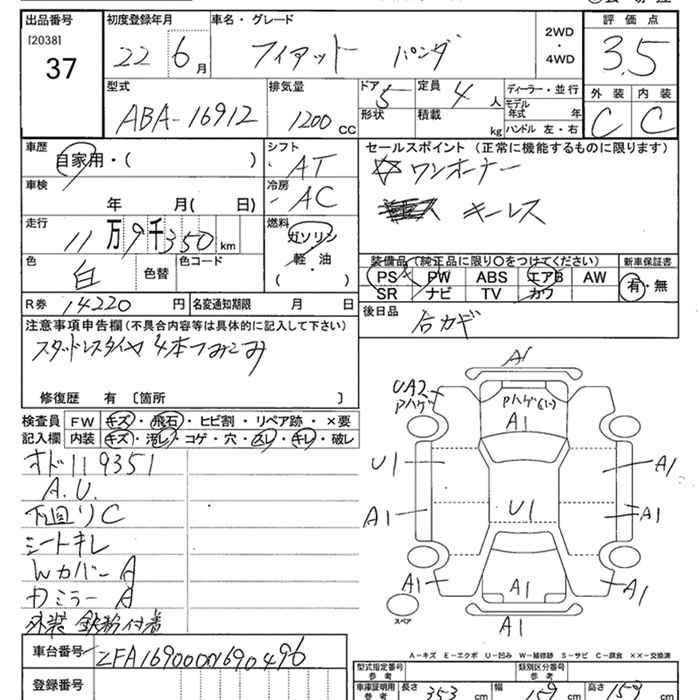 出品番号 初度登録年月 車名・グレード 評価点
[2038] 37
22 6月 フィアット パンダ
2WD・4WD
3.5
型式 排気量 ドア 定員 ディーラー・並行 外装 内装
ABA-16912 1200CC 5 4人
形状 積載 kg モデル年式 年
ハンドル 左・右
C C
車歴 シフト セールスポイント (正常に機能するものに限ります)
自家用・( ) AT ☆ワンオーナー
車検 冷房
年 月( 日) AC キーレス
走行 燃料
11万9千350km ガソリン
軽・油
( )
色 白 色替 色コード
装備品(純正品に限り○をつけてください) 新車保証書
PS PW ABS エアB AW 有・無
SR ナビ TV カワ
R券 14220円 名変通知期限 月 日
後日品 合カギ
注意事項申告欄(不具合内容等は具体的に記入して下さい)
スタッドレスタイヤ 4本つみこみ
修復歴 有 〔箇所 〕
検査員 FW キズ・飛石・ヒビ割・リペア跡・×要
記入欄 内装 キズ・汚レ・コゲ・穴・スレ・キレ・破レ
オド119351
A.U.
下回りC
シートキレ
WカバーA
DミラーA
外装 鉄粉付着
A1
UA2
Pハゲ
Pハゲ(小)
A1
U1 A1
U1
A1 A1
A1 A1 A1
スペア
A1
A-キズ E-エクボ U-凹み W-補修跡 S-サビ C-腐食 XX-交換済
車台番号 ZFA16900001690496
型式指定番号 参考 類別区分番号 参考
登録番号
車庫証明用 参考 長さ 353cm 幅 159cm 高さ 159cm